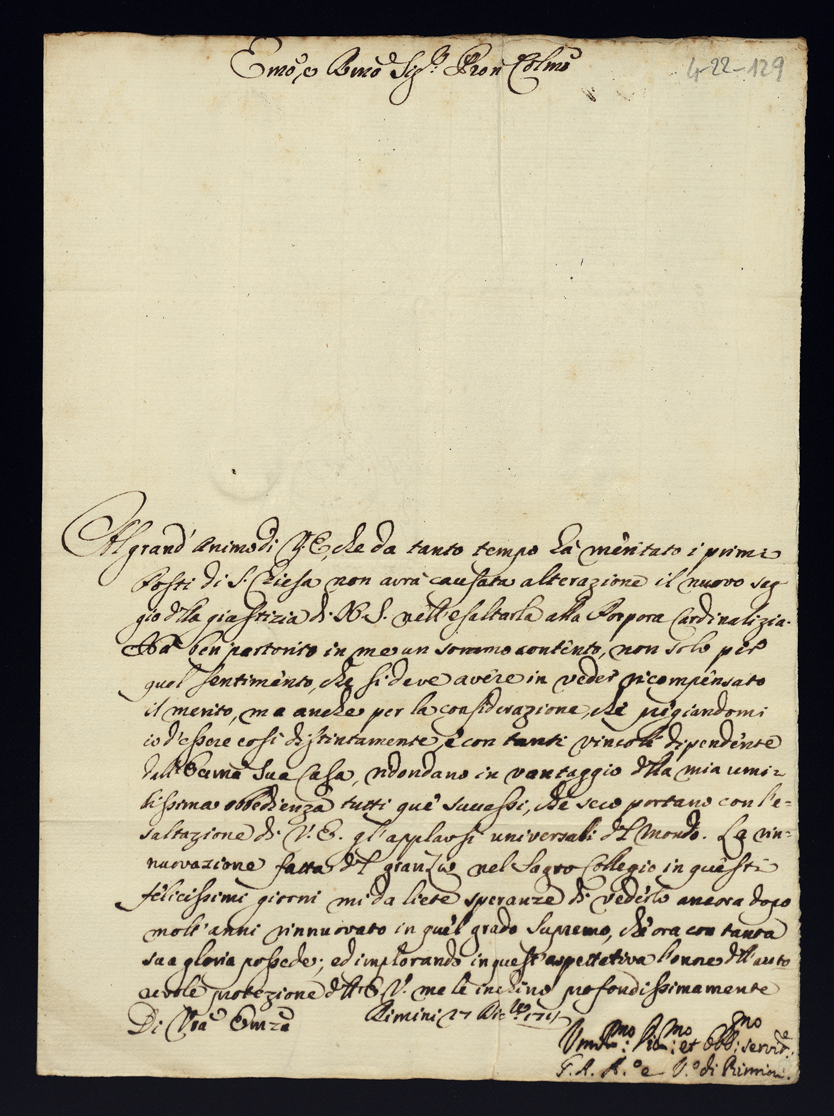 Emo, e Rmo Sigr. Pron Colmo
4-22-129
Al grand' Animo di V. E., che da tanto tempo hà meritato i primi
Posti di S. Chiesa non avrà causata alterazione il nuovo seg-
gio della giustizia di N. S. nell'esaltarla alla Porpora Cardinalizia.
Ha ben partorito in me un sommo contento, non solo per
quel sentimento, che si deve avere in veder ricompensato
il merito, ma anche per la considerazione, che pregiandomi
io d'essere così distintamente, e con tanti vincoli dipendente
dall' Eccma Sua Casa, ridondano in vantaggio della mia umi-
lissima obbedienza tutti que' successi, che seco portano con l'e-
saltazione di V. E. gl'applausi universali del Mondo. La rin-
nuovazione fatta del gran Zio nel Sagro Collegio in questi
felicissimi giorni mi da liete speranze di vederlo ancora dopo
molt' anni rinnuovato in quel grado Supremo, ch'ora con tanta
sua gloria possede; ed implorando in quest'aspettativa l'onore dell'auto
revole protezione dell'E. V. me le inchino profondissimamente
Di Vra Emza
Rimini 17
Devmo: et Obbmo: servide.
V.o di Rimini